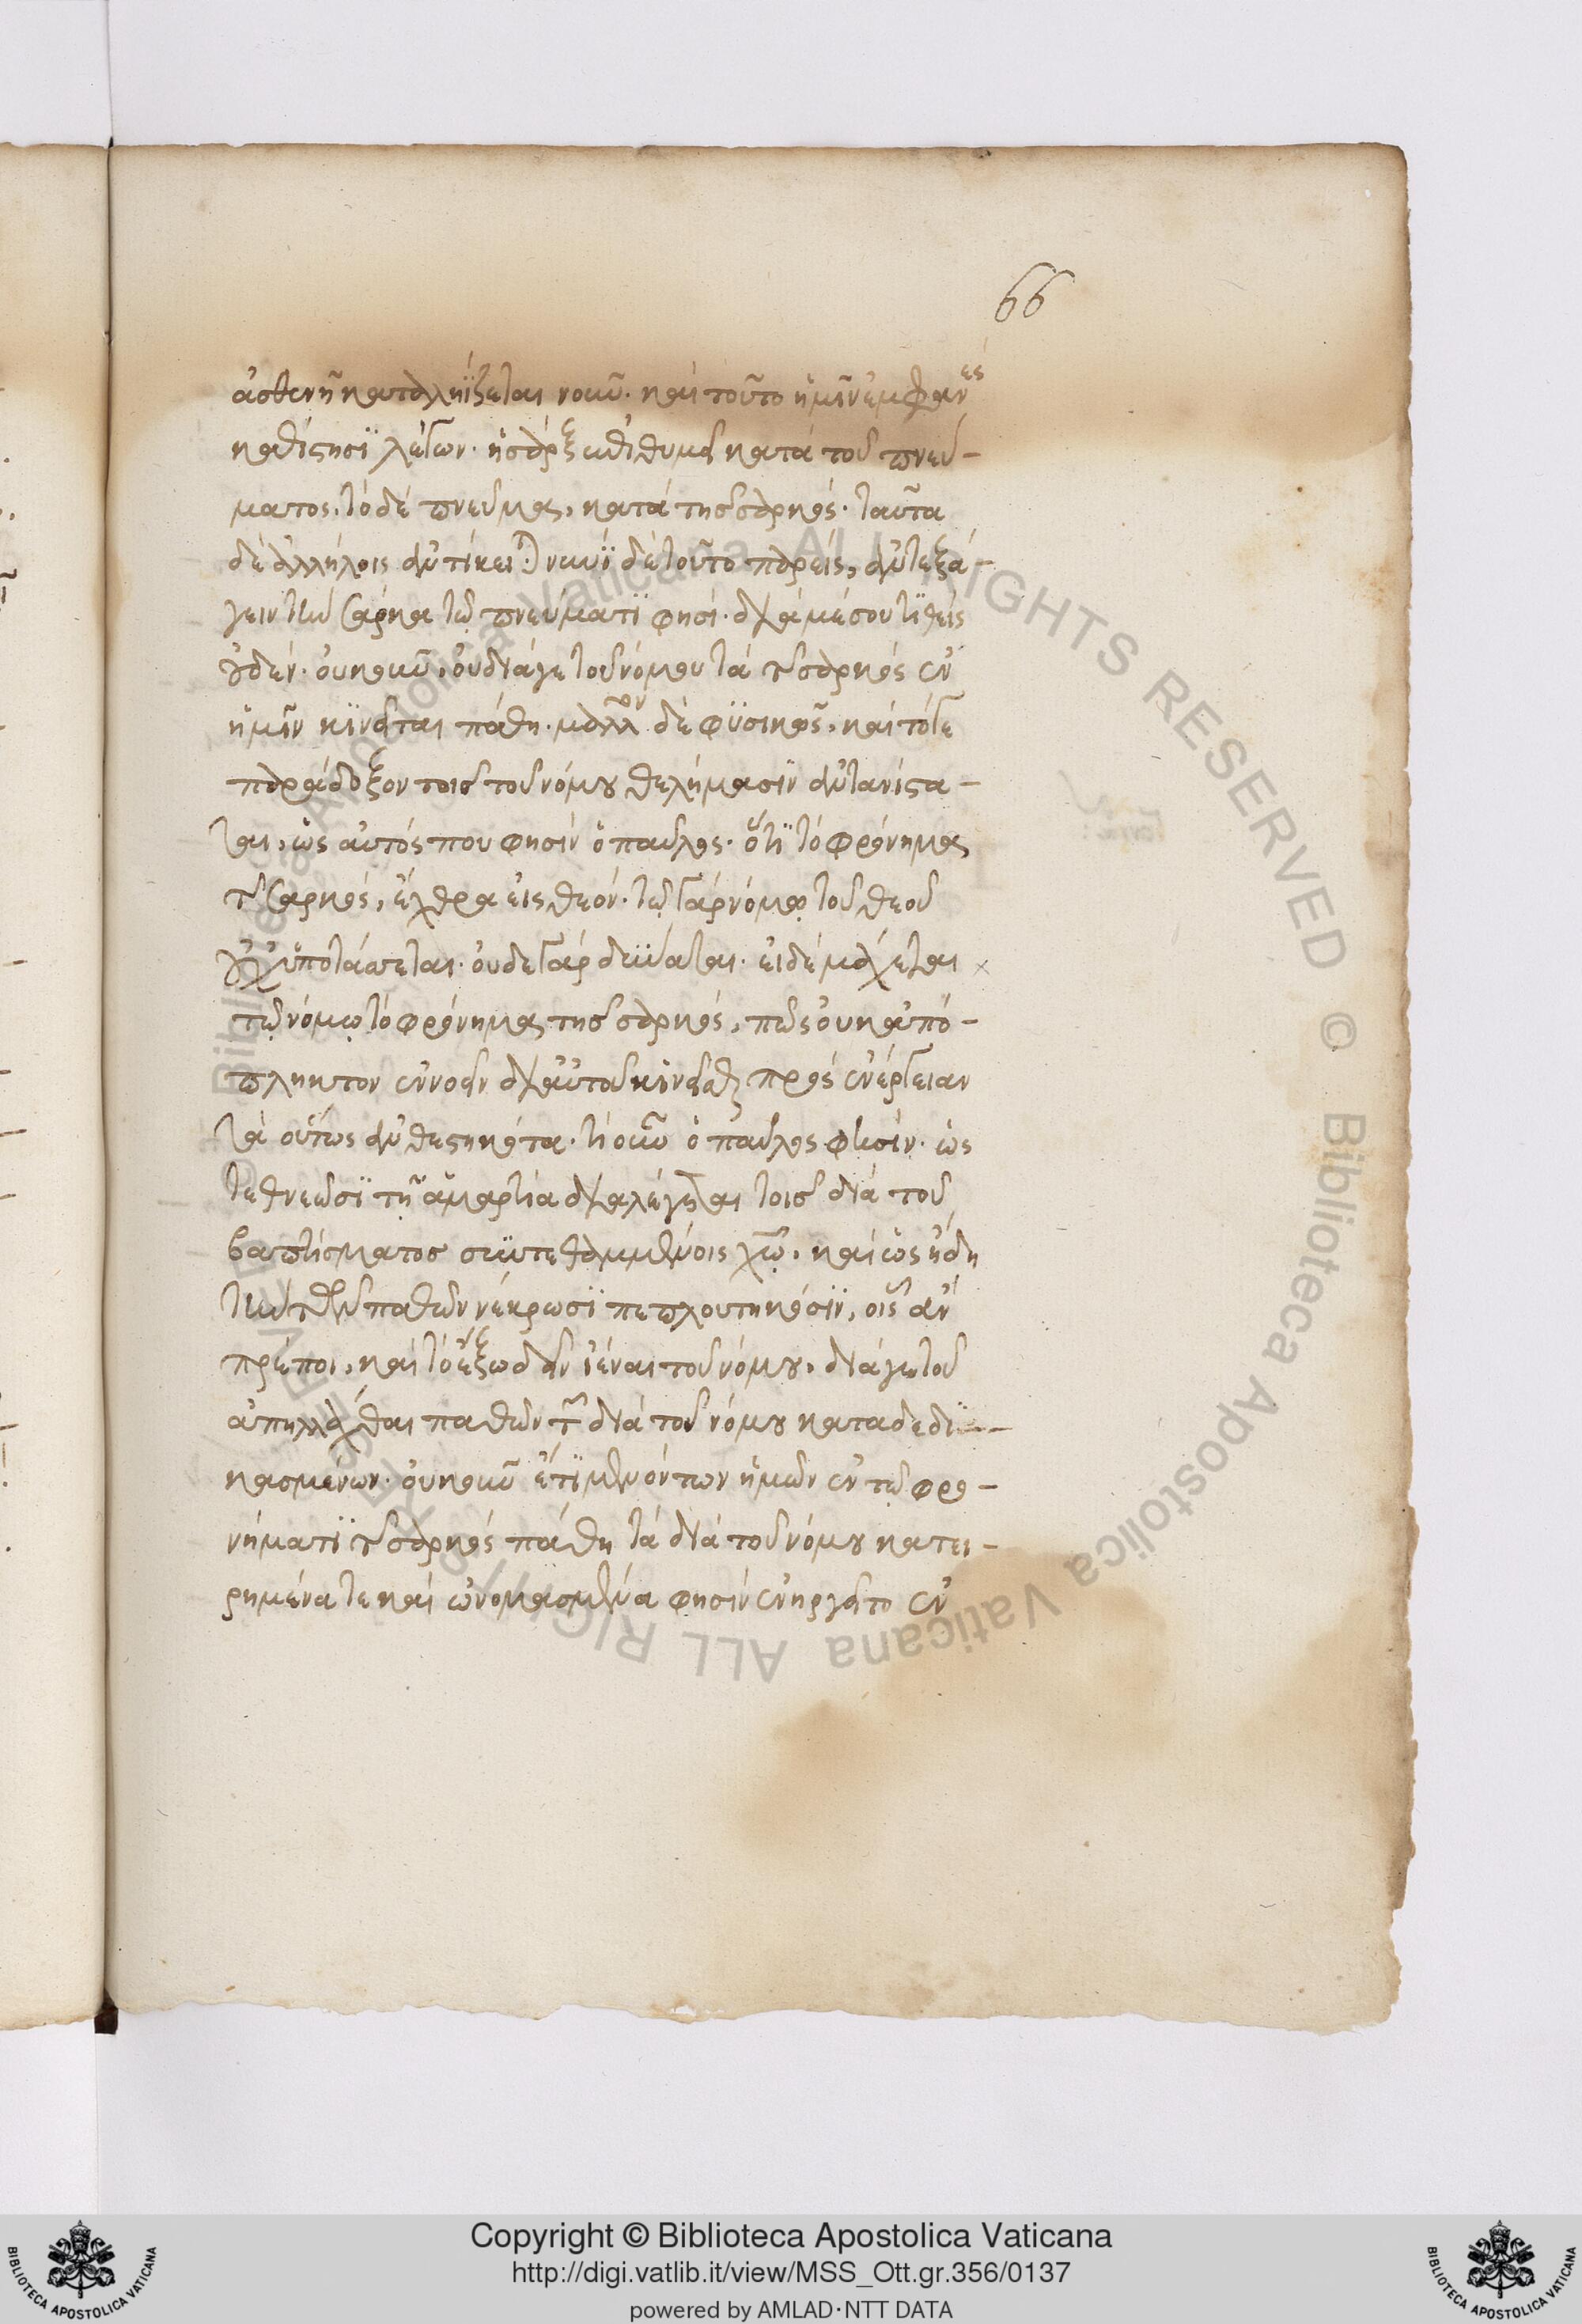 66
ἀσθενῆ καταλληΐζεται νοῦν. καὶ τοῦτο ἡμῖν ἐμφανὲς
καθίστησϊ λέγων. ἡ σὰρξ ἐπιθυμεῖ κατὰ τοῦ πνεύ-
ματος. τὸ δὲ πνεῦμα, κατὰ τῆς σαρκός. ταῦτα
δὲ ἀλλήλοις ἀντίκειται νυνῒ δὲ τοῦτο παρεὶς, ἀντεξά-
γειν τὴν σάρκα τῷ πνεύματϊ φησὶ. διὰ μέσου τϊθεὶς
οὐδέν. οὐκοῦν, οὐ διά γε τοῦ νόμου τὰ τῆς σαρκὸς ἐν
ἡμῖν κϊνεῖται πάθη. μᾶλλον δὲ φϋσικῶς, καὶ τό γε
παράδοξον τοῖς τοῦ νόμου θελήμασϊν ἀντανίστα-
ται, ὡς αὐτός που φησὶν ὁ παῦλος. ὅτϊ τὸ φρόνημα
τῆς σαρκὸς, ἔχθρα εἰς θεόν. τῷ γὰρ νόμῳ τοῦ θεοῦ
οὐχ ὑποτάσσεται. οὐδὲ γὰρ δύναται. εἰ δὲ μάχεται ×
τῷ νόμῳ τὸ φρόνημα τῆς σαρκὸς, πῶς οὐκ ἀπό-
πληκτον ἐννοεῖν δι' αὐτοῦ κινεῖσθαι πρὸς ἐνέργειαν
τὰ οὕτως ἀνθεστηκότα. τί οὖν ὁ παῦλος φησίν. ὡς
τεθνεῶσϊ τῇ ἁμαρτία διαλέγεται τοῖς διὰ τοῦ
βαπτίσματος συντεθαμμένοις χῷ. καὶ ὡς ἤδη
τὴν τῶν παθῶν νέκρωσϊ πεπλουτηκόσϊν, οἷς ἂν
πρέποι, καὶ τὸ ἔξω δεῖν ἰέναι τοῦ νόμου, διά γε τοῦ
ἀπηλλάχθαι παθῶν τῶν διὰ τοῦ νόμου καταδεδϊ-
κασμένων. οὐκοῦν ἔτϊ μὲν ὄντων ἡμῶν ἐν τῷ φρο-
νήματϊ τῆς σαρκὸς πάθη τὰ διὰ τοῦ νόμου κατει-
ρημένα τε καὶ ὠνομασμένα φησὶν ἐνηργεῖτο ἐν
Copyright © Biblioteca Apostolica Vaticana
http://digi.vatlib.it/view/MSS_Ott.gr.356/0137
powered by AMLAD·NTT DATA